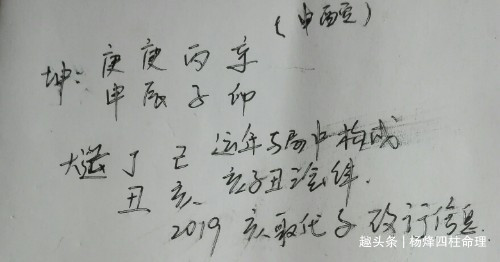 (申酉空)
坤: 庚 庚 丙 辛
申 辰 子 卯
大运 丁 己 运年与局中构成
丑 亥. 亥子丑三会
2019 亥取代子 改行信息
趣头条 | 杨烽四柱命理